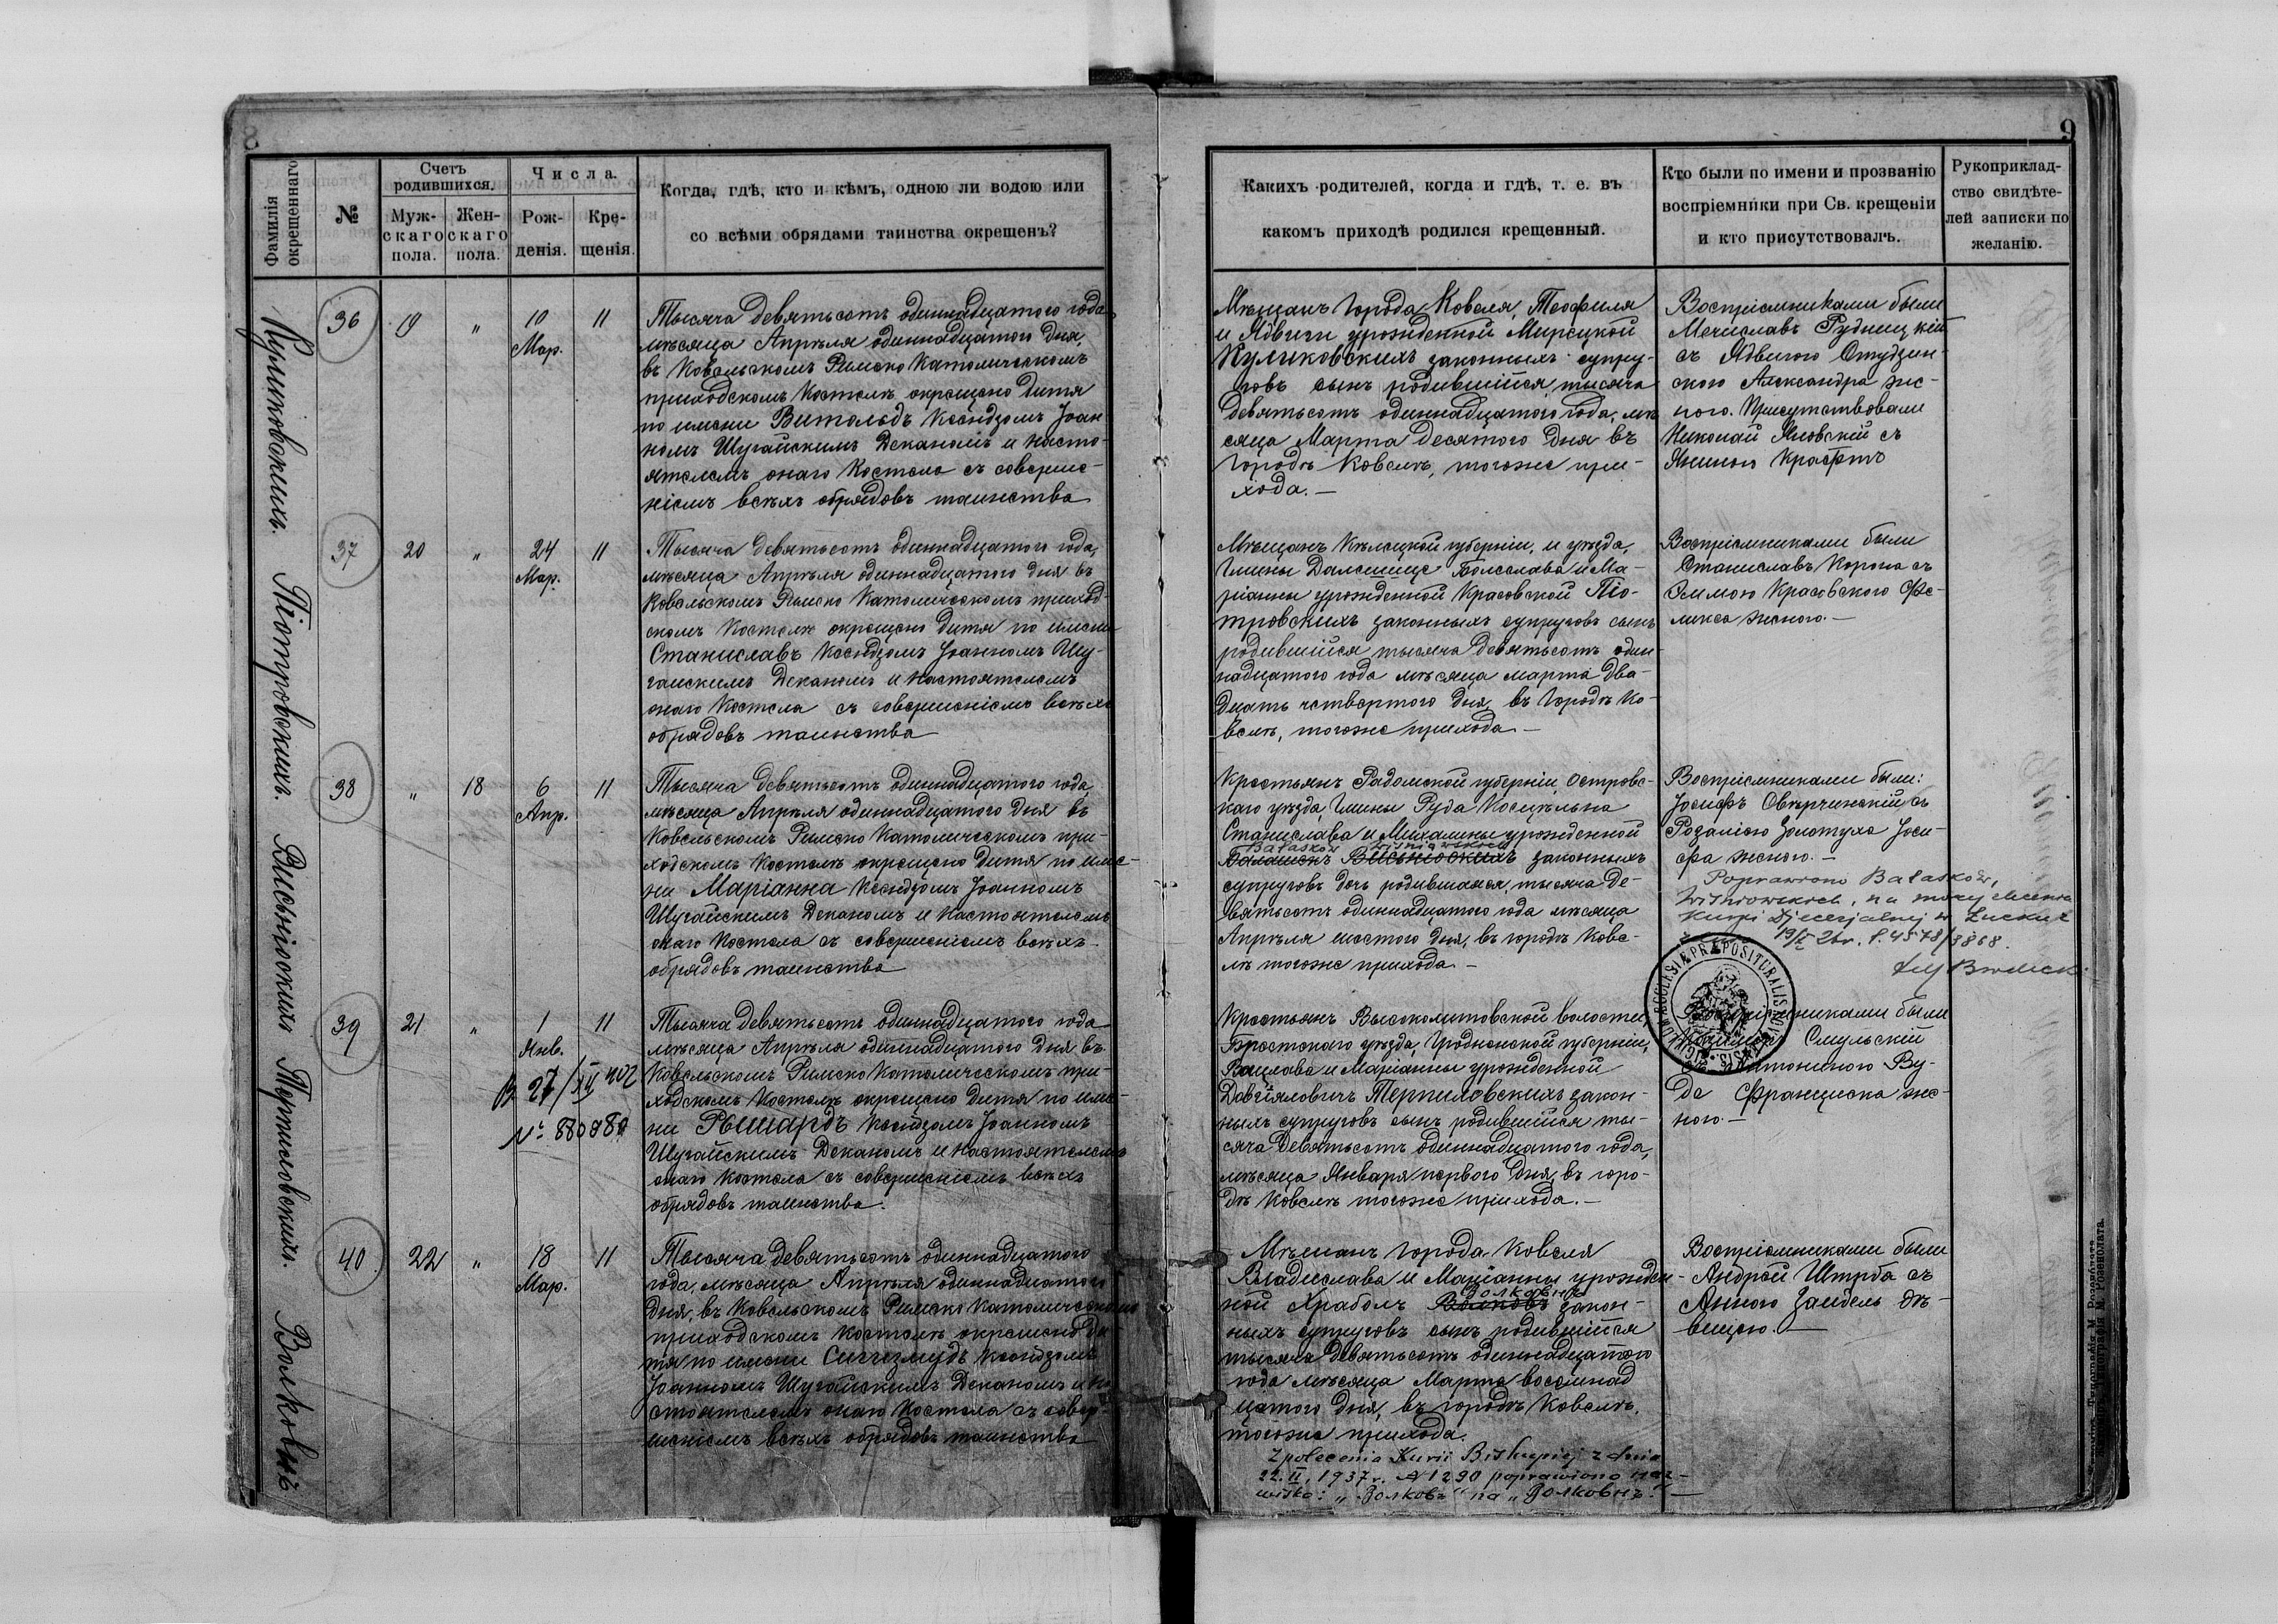 8
Фамилія окрещеннаго
№
Счетъ родившихся.
Мужскаго пола.
Женскаго пола.
Числа.
Рожденія.
Крещенія.
Когда, гдѣ, кто и кѣмъ, одною ли водою или
со всѣми обрядами таинства окрещенъ?
Куликовскихъ.
36
19
"
10
Мар.
11
Тысяча девятьсотъ одиннадцатого года
мѣсяца Апрѣля одиннадцатого дня,
въ Ковельскомъ Римско Католическомъ
приходскомъ Костелѣ окрещено дитя
по имени Витольдъ Ксендзомъ Іоан-
номъ Шугайскимъ Деканомъ и насто-
ятелемъ онаго Костела съ соверше-
ніемъ всѣхъ обрядовъ таинства
Піотровскихъ.
37
20
"
24
Мар.
11
Тысяча девятьсотъ одиннадцатого года,
мѣсяца Апрѣля одиннадцатого дня въ
Ковельскомъ Римско Католическомъ приход-
скомъ Костелѣ окрещено дитя по имени
Станиславъ Ксендзомъ Іоанномъ Шу-
гаискимъ Деканомъ и Настоятелемъ
онаго Костела съ совершеніемъ всѣхъ
обрядовъ таинства
38
"
18
6
Апр.
11
Тысяча девятьсотъ одиннадцатого года,
мѣсяца Апрѣля одиннадцатого дня въ
Ковельскомъ Римско Католическомъ при-
ходскомъ Костелѣ окрещено дитя по име-
ни Маріанна Ксендзомъ Іоанномъ
Шугайскимъ Деканомъ и Настоятелемъ
онаго Костела съ совершеніемъ всѣхъ
обрядовъ таинства
Терпиловскихъ.
39
21
"
1
Янв.
11
27/XII 902
№ 880880
Тысяча девятьсотъ одиннадцатого года
мѣсяца Апрѣля одиннадцатого дня въ
Ковельскомъ Римско Католическомъ при-
ходскомъ Костелѣ окрещено дитя по име-
ни Рышардъ Ксендзомъ Іоанномъ
Шугайскимъ Деканомъ и Настоятелемъ
онаго Костела съ совершеніемъ всѣхъ
обрядовъ таинства.
Волковнъ
40
22
"
18
Мар.
11
Тысяча девятьсотъ одиннадцатого
года, мѣсяца Апрѣля одиннадцатого
дня, въ Ковельскомъ Римско Католическомъ
приходскомъ Костелѣ окрещено ди
тя по имени Сигизмудъ Ксендзомъ
Іоанномъ Шугайскимъ Деканомъ и На
стоятелемъ онаго Костела съ совер-
шеніемъ всѣхъ обрядовъ таинства
9
Какихъ родителей, когда и гдѣ, т. е. въ
какомъ приходѣ родился крещенный.
Кто были по имени и прозванію
воспріемники при Св. крещеніи
и кто присутствовалъ.
Рукоприклад-
ство свидѣте-
лей записки по
желанію.
Мѣщанъ города Ковеля, Теофиля
и Ядвиги урожденной Мирецкой
Куликовскихъ законныхъ супру-
говъ сынъ родившійся тысяча
девятьсотъ одиннадцатого года, мѣ
сяца Марта десятого дня въ
городѣ Ковелѣ, тогоже при-
хода.—
Воспріемниками были
Мечиславъ Рудницкій
съ Ядвигою Студзин-
скою Александра же-
ною. Присутствовали
Николай Яновскій съ
Яниною Крафтъ
Мѣщанъ Кѣлецкой губерніи, и уѣзда,
гмины Далешице Болеслава и Ма-
ріанны урожденной Красовской Піо-
тровскихъ законныхъ супруговъ сынъ
родившійся тысяча девятьсотъ один-
надцатого года мѣсяца марта два-
дцать четвертого дня, въ городѣ Ко-
велѣ, тогоже прихода.—
Воспріемниками были
Станиславъ Корона съ
Эммою Красовского Фе-
ликса женою.—
Крестьянъ Радомской губерніи,
каго уѣзда, гмины Руда Косцѣльна
Станислава и Михалины урожденной
Bałasków Wiśniowskich
законныхъ
супруговъ дочь родившаяся, тысяча де-
вятьсотъ одиннадцатого года мѣсяца
Апрѣля шестого дня, въ городѣ Кове-
лѣ тогоже прихода.—
Воспріемниками были:
Іосифъ Свѣрчинскій съ
Розаліею Золотуха Іоси-
фа женою.—
Poprawiono Bałasków,
Wiśniowskich, na mocy
Kurji Djecezjalnej w Łucku z
4578/3868.
Крестьянъ Высоколитовской волости
Брестскаго уѣзда, Гродненской губерніи,
Вацлава и Маріанны урожденной
Довгяловичъ Терпиловскихъ закон-
ныхъ супруговъ сынъ родившійся ты-
сяча девятьсотъ одиннадцатого года,
мѣсяца Января первого дня, въ горо-
дѣ Ковелѣ тогоже прихода.—
Воспріемниками были
Смульскій
Антониною Ву-
де Франциска же-
ною.—
Мѣщанъ города Ковеля
Владислава и Маріанны урожден-
ной Храболъ Волковнъ закон-
ныхъ супруговъ сынъ родившійся
тысяча девятьсотъ одиннадцатого
года мѣсяца Марта восемнад
цатого дня, въ городѣ Ковелѣ,
тогоже прихода.
Z polecenia Kurii Biskupiej z dnia
22.II.1937 r. № 1290 poprawiono naz-
wisko: „Волковъ" na „Волковнъ".—
Воспріемниками были
Андрей Штрба съ
Анною Зайдель дѣ-
вицею.—